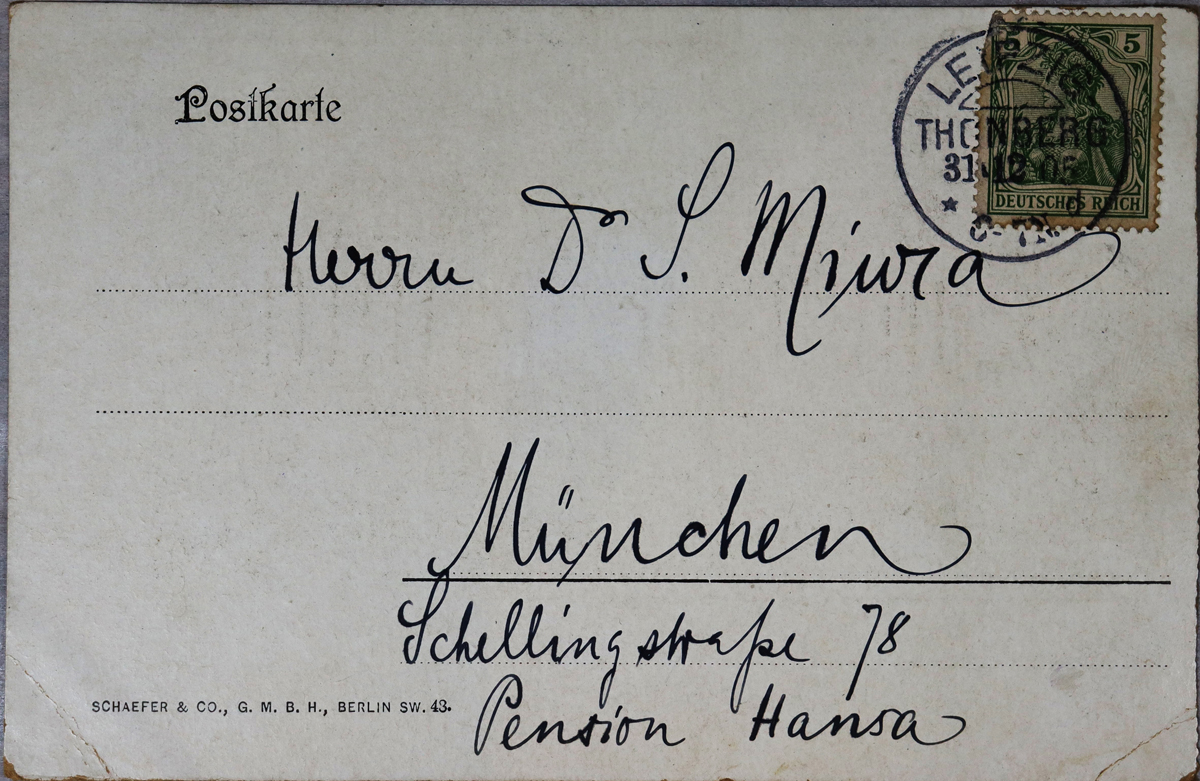 Postkarte
5 5
LEIPZIG
THONBERG
31.12.05
DEUTSCHES REICH
Herrn Dr S. Miura
München
Schellingstraße 78
SCHAEFER & CO., G. M. B. H., BERLIN SW. 48.
Pension Hansa